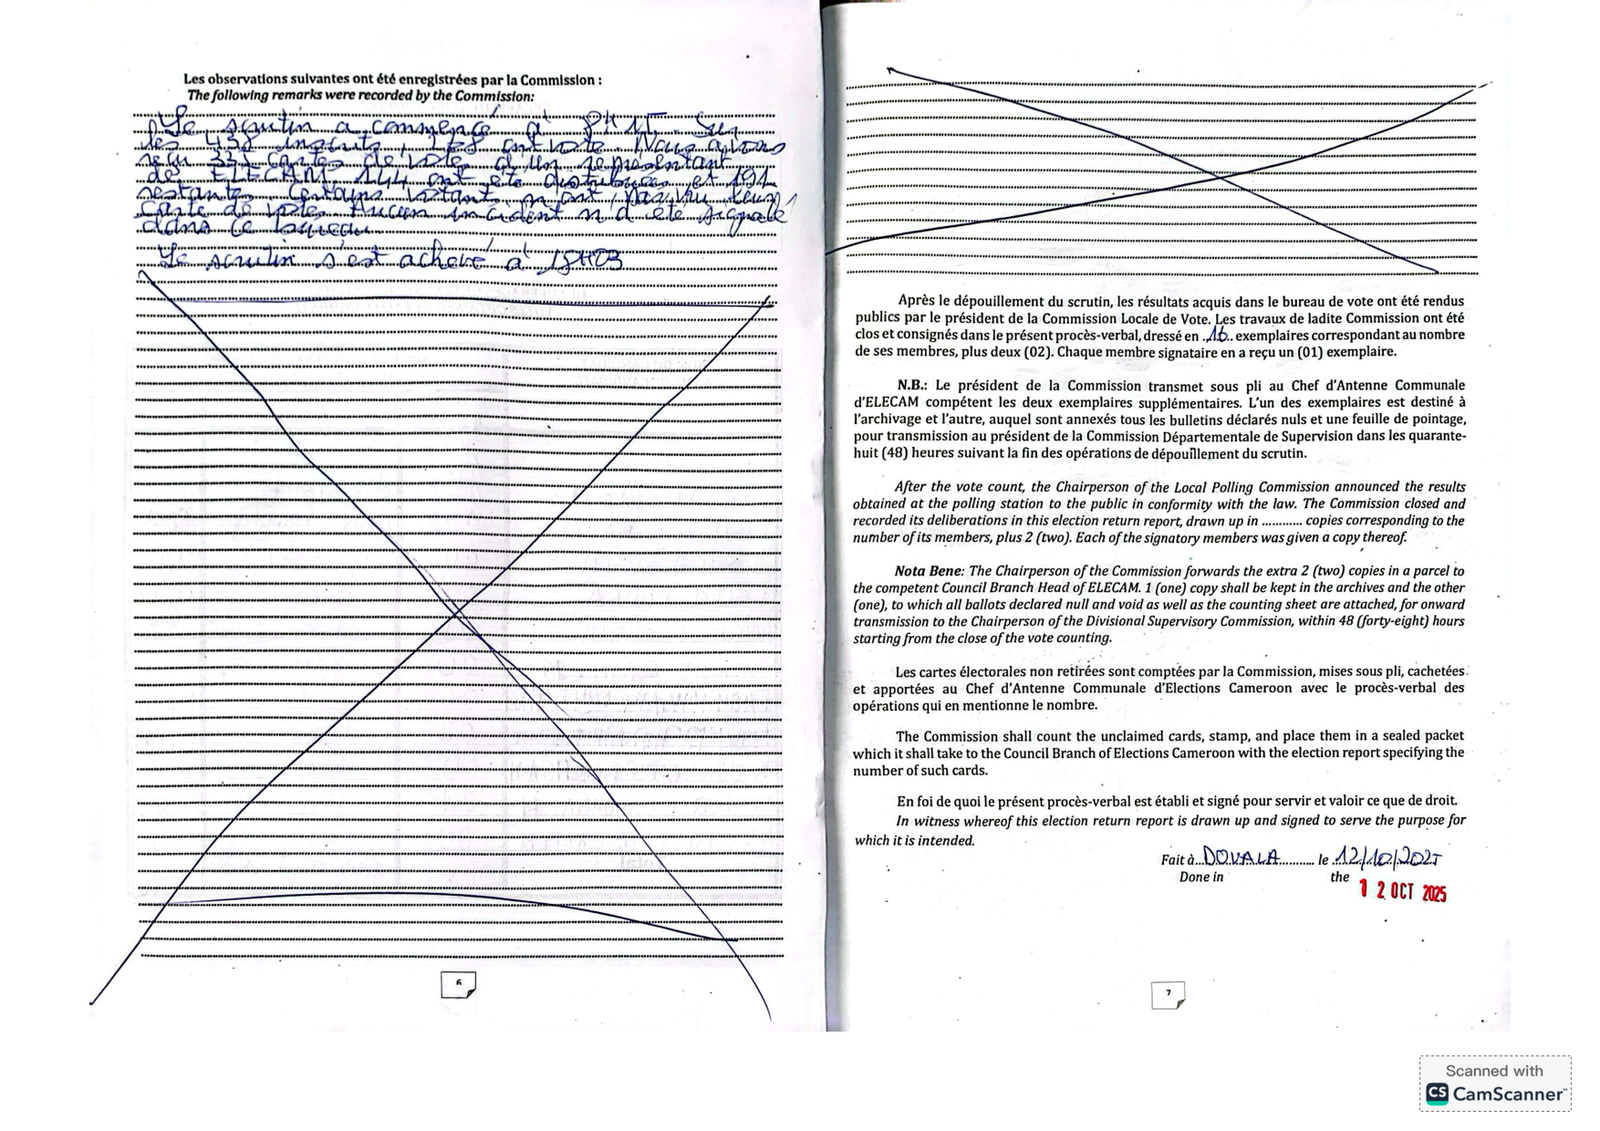 Les observations suivantes ont été enregistrées par la Commission :
The following remarks were recorded by the Commission:
Le scrutin a commencé à 8H15. Sur
les 438 inscrits, ont voté. Nous avons
reçu 335 cartes de vote d'un représentant
de ELECAM 144 ont été distribuées et 191
restants. Certains votants n'ont pas vu leurs
carte de votes. Aucun incident n'a été signalé
dans ce bureau.
Le scrutin s'est achevé à 18H03
6
Après le dépouillement du scrutin, les résultats acquis dans le bureau de vote ont été rendus
publics par le président de la Commission Locale de Vote. Les travaux de ladite Commission ont été
clos et consignés dans le présent procès-verbal, dressé en .16.. exemplaires correspondant au nombre
de ses membres, plus deux (02). Chaque membre signataire en a reçu un (01) exemplaire.
N.B.: Le président de la Commission transmet sous pli au Chef d'Antenne Communale
d'ELECAM compétent les deux exemplaires supplémentaires. L'un des exemplaires est destiné à
l'archivage et l'autre, auquel sont annexés tous les bulletins déclarés nuls et une feuille de pointage,
pour transmission au président de la Commission Départementale de Supervision dans les quarante-
huit (48) heures suivant la fin des opérations de dépouillement du scrutin.
After the vote count, the Chairperson of the Local Polling Commission announced the results
obtained at the polling station to the public in conformity with the law. The Commission closed and
recorded its deliberations in this election return report, drawn up in ............ copies corresponding to the
number of its members, plus 2 (two). Each of the signatory members was given a copy thereof.
Nota Bene: The Chairperson of the Commission forwards the extra 2 (two) copies in a parcel to
the competent Council Branch Head of ELECAM. 1 (one) copy shall be kept in the archives and the other
(one), to which all ballots declared null and void as well as the counting sheet are attached, for onward
transmission to the Chairperson of the Divisional Supervisory Commission, within 48 (forty-eight) hours
starting from the close of the vote counting.
Les cartes électorales non retirées sont comptées par la Commission, mises sous pli, cachetées
et apportées au Chef d'Antenne Communale d'Elections Cameroon avec le procès-verbal des
opérations qui en mentionne le nombre.
The Commission shall count the unclaimed cards, stamp, and place them in a sealed packet
which it shall take to the Council Branch of Elections Cameroon with the election report specifying the
number of such cards.
En foi de quoi le présent procès-verbal est établi et signé pour servir et valoir ce que de droit.
In witness whereof this election return report is drawn up and signed to serve the purpose for
which it is intended.
Fait à...DOUALA.......... le .12/10/2025
Done in the
12 OCT 2025
7
Scanned with
CS CamScanner